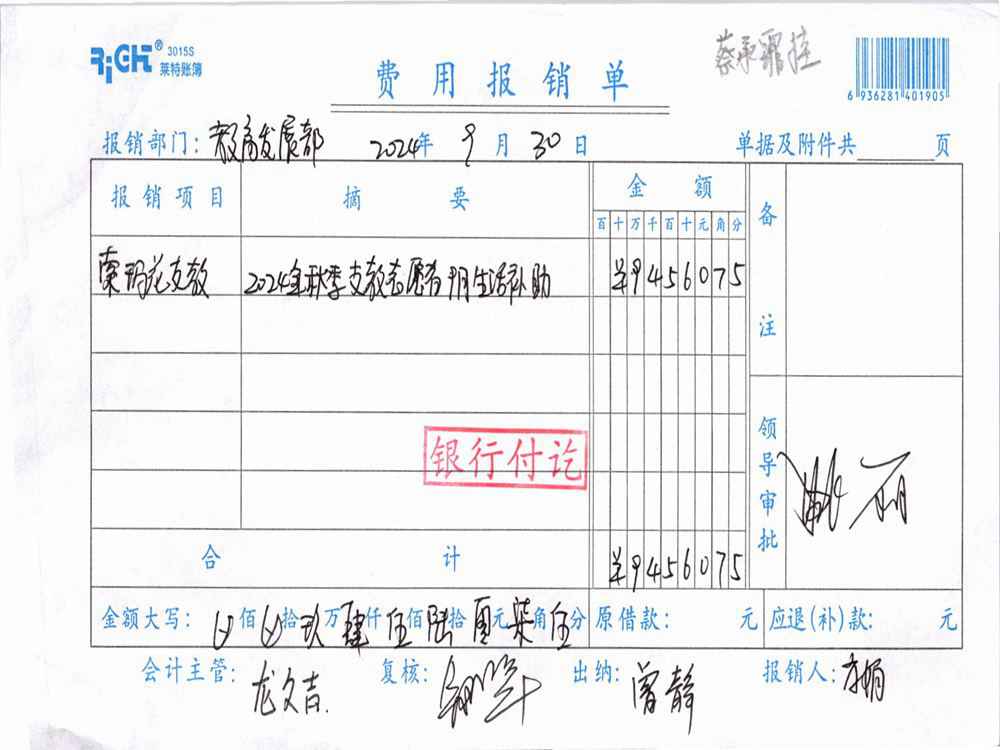 RiCH® 3015S
莱特账簿
蔡承 控
费用报销单
6 936281 401905
报销部门: 教育发展部 2024年 9月 30日 单据及附件共 页
报销项目 摘要 金额 备注
百十万千百十元角分
索玛花支教 2024年秋季支教志愿者9月生活补助 ¥9456075
银行付讫
领导审批 丽
合计 ¥9456075
金额大写: 佰 拾 玖万 肆仟 伍佰 陆拾 零元 柒角 伍分 原借款: 元 应退(补)款: 元
会计主管: 龙文吉 复核: 出纳: 曾静 报销人: 方娟